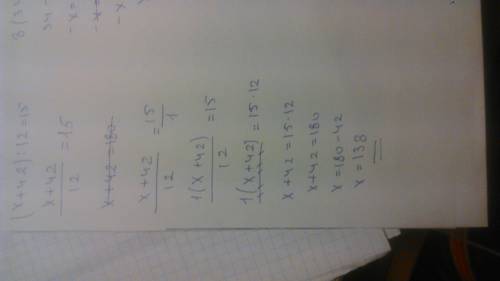 (x+42):12=15
x+42/12=15
x+42=180
x+42/12=15/1
1(x+42)/12=15
1(x+42)=15·12
x+42=15·12
x+42=180
x=180-42
x=138
8(34
34-
-x=
-x=
-x